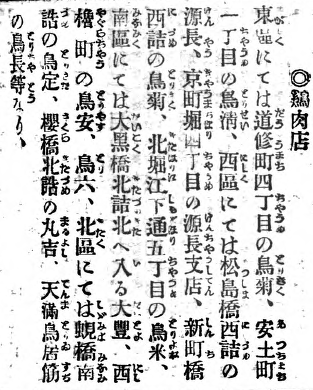 ◎鷄肉店
東區にては道修町四丁目の鳥菊、安土町
一丁目の鳥淸、西區にては松島橋西詰の
源長、京町堀四丁目の源長支店、新町橋
西詰の鳥菊、北堀江下通五丁目の鳥米、
南區にては大黑橋北詰北へ入る大豐、西
櫓町の鳥安、鳥六、北區にては蜆橋南
詰の鳥定、櫻橋北詰の丸吉、天滿鳥居筋
の鳥長等なり、